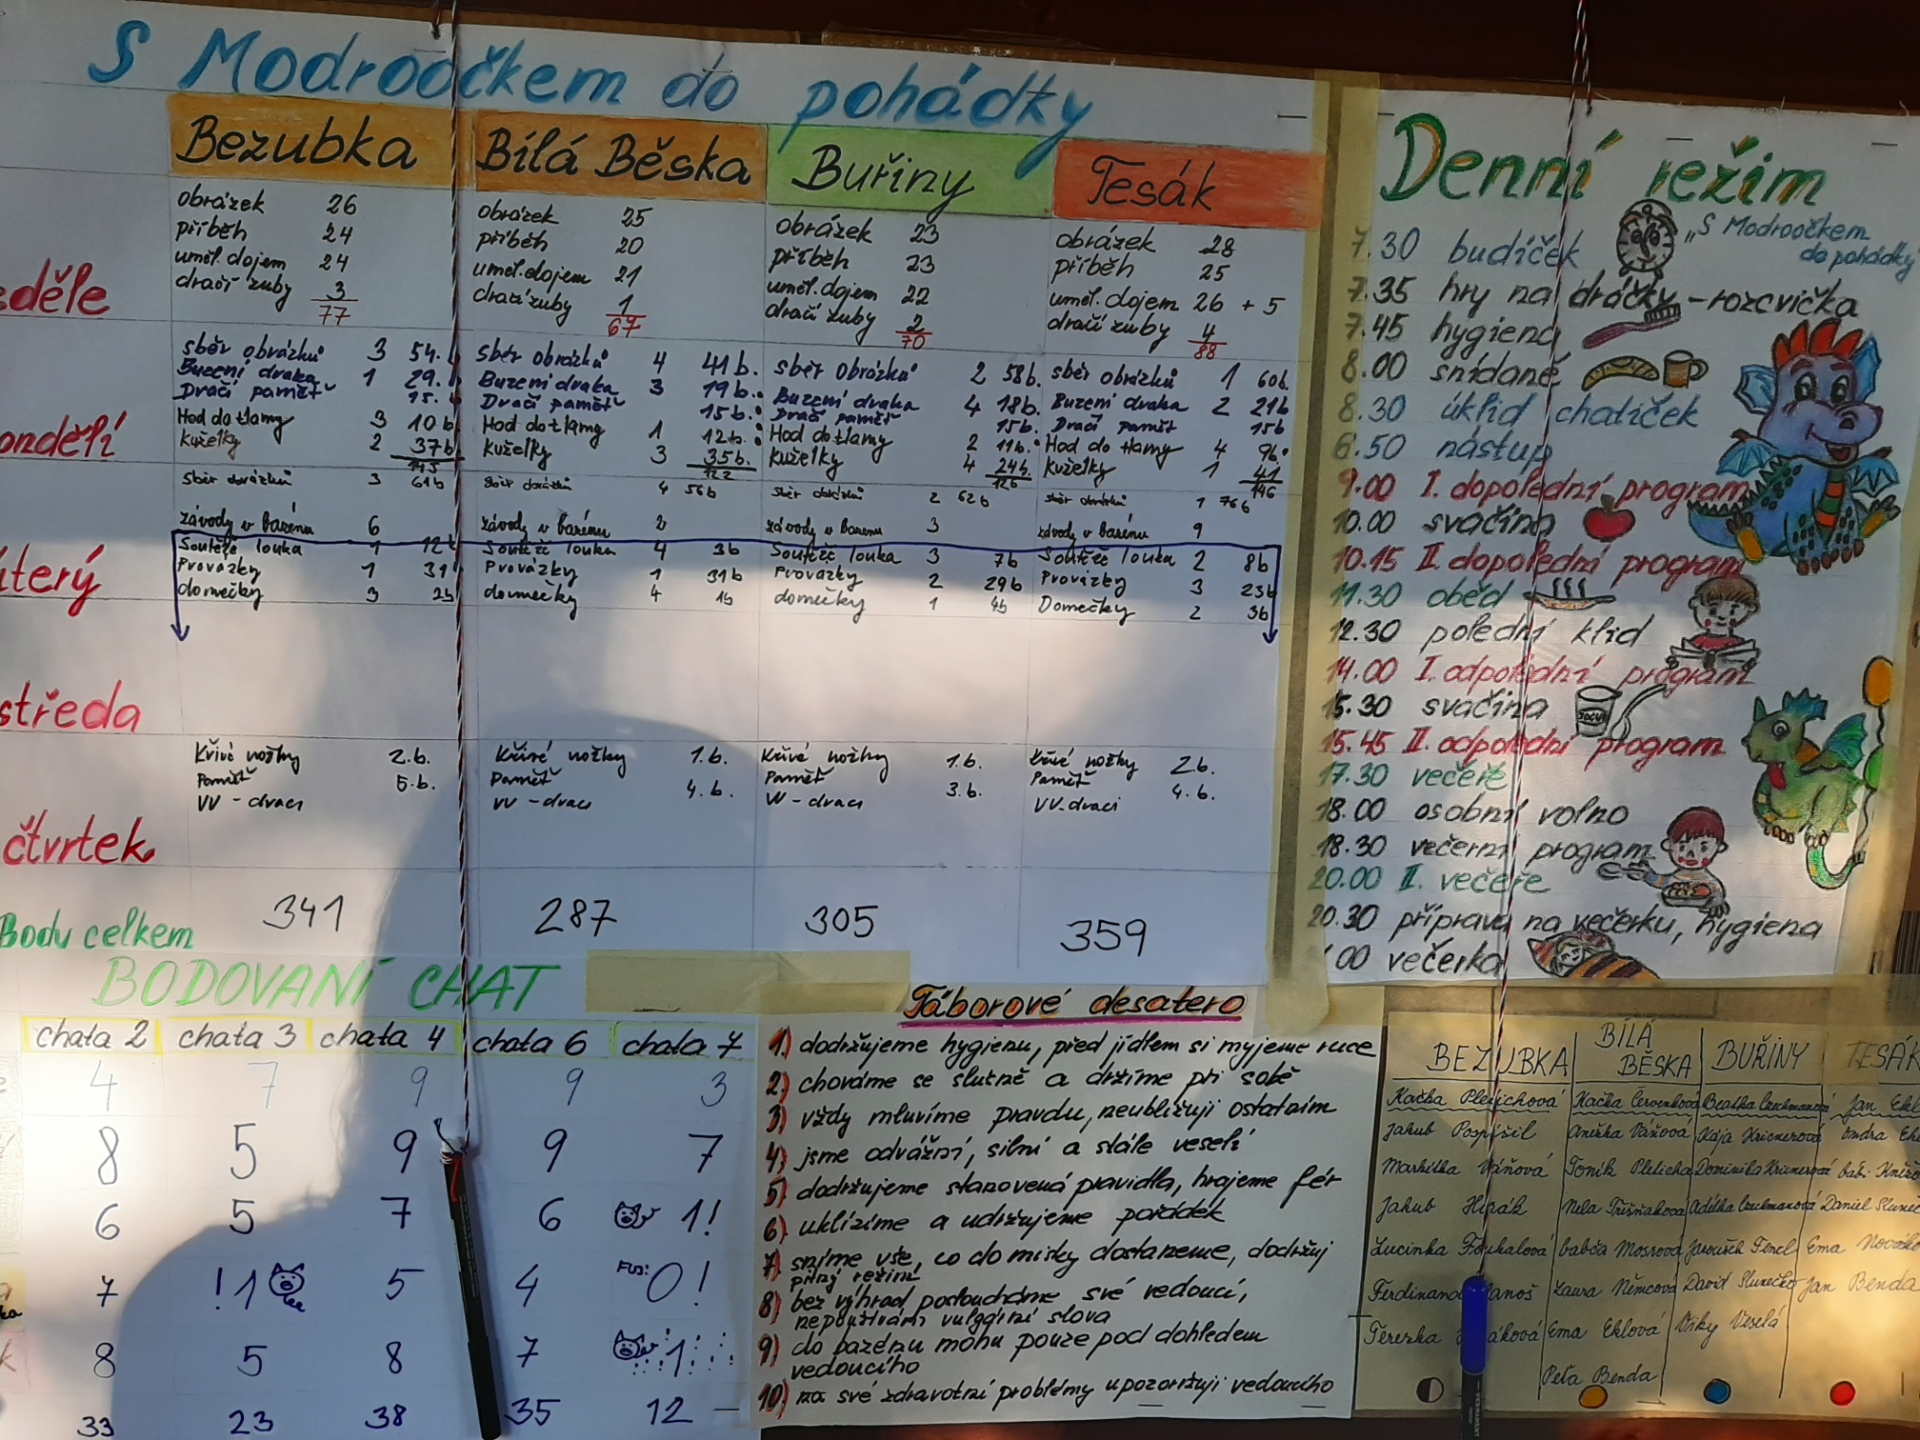 S Modroočkem do pohádky
Bezubka Bílá Běska Buřiny Tesák
děle
obrázek 26
příběh 24
uměl. dojem 24
dračí zuby 3
77
obrázek 25
příběh 20
uměl. dojem 21
dračí zuby 1
67
obrázek 23
příběh 23
uměl. dojem 22
dračí zuby 2
70
obrázek 28
příběh 25
uměl. dojem 26 + 5
dračí zuby 4
88
ondělí
sběr obrázků 3 54.
Buzení draka 1 29.
Dračí paměť 15.
Hod do tlamy 3 10 b
kuželky 2 37b
145
sběr obrázků 4 41b.
Buzení draka 3 19b.
Dračí paměť 15b.
Hod do tlamy 1 12b.
kuželky 3 35b.
122
sběr obrázků 2 58b.
Buzení draka 4 18b.
Dračí paměť 15b.
Hod do tlamy 2 11b.
kuželky 4 24b.
126
sběr obrázků 1 60b.
Buzení draka 2 21b
Dračí paměť 15b
Hod do tlamy 4 9b.
kuželky 1 41
146
úterý
sběr obrázků 3 61b
závody v bazénu 6
Soutěže louka 1 12b
Provázky 1 31
domečky 3 2b
sběr obrázků 4 56b
závody v bazénu 2
Soutěže louka 4 3b
Provázky 1 31b
domečky 4 1b
sběr obrázků 2 62b
závody v bazénu 3
Soutěže louka 3 7b
Provázky 2 29b
domečky 1 4b
sběr obrázků 1 76b
závody v bazénu 9
Soutěže louka 2 8b
Provázky 3 23b
Domečky 2 3b
středa
čtvrtek
Křivé nožky 2.b.
Paměť 5.b.
VV - draci
Křivé nožky 1.b.
Paměť 4.b.
VV - draci
Křivé nožky 1.b.
Paměť 3.b.
VV - draci
Křivé nožky 2b.
Paměť 4.b.
VV - draci
Body celkem 341 287 305 359
Denní režim
„S Modroočkem
do pohádky
7.30 budíček
7.35 hry na dráčky - rozcvička
7.45 hygiena
8.00 snídaně
8.30 úklid chatiček
8.50 nástup
9.00 I. dopolední program
10.00 svačina
10.15 II. dopolední program
11.30 oběd
12.30 polední klid
14.00 I. odpolední program
15.30 svačina
15.45 II. odpolední program
17.30 večeře
18.00 osobní volno
18.30 večerní program
20.00 II. večeře
20.30 příprava na večerku, hygiena
00 večerka
BODOVANÍ CHAT
chata 2 chata 3 chata 4 chata 6 chata 7
4 7 9 9 3
8 5 9 9 7
6 5 7 6 1!
7 !1 5 4 FUJ: 0!
8 5 8 7 1
33 23 38 35 12
Táborové desatero
1) dodržujeme hygienu, před jídlem si myjeme ruce
2) chováme se slušně a držíme při sobě
3) vždy mluvíme pravdu, neubližuji ostatním
4) jsme odvážní, silní a stále veselí
5) dodržujeme stanovená pravidla, hrajeme fér
6) uklízíme a udržujeme pořádek
7) sníme vše, co do misky dostaneme, dodržuj
pitný režim
8) bez výhrad posloucháme své vedoucí,
nepoužívám vulgární slova
9) do bazénu mohu pouze pod dohledem
vedoucího
10) na své zdravotní problémy upozorňuji vedoucího
BEZUBKA BÍLÁ BĚSKA BUŘINY TESÁK
Kačka Pletichová Kačka Červenková Beatka Jan
Jakub Pospíšil Anežka Váňová Kája Ondra
Markétka Váňová Toník Pleticha Dominika
Jakub Nela Adélka Daniel
Lucinka babča Mosrová Jaroušek Fencl Ema
Ferdinand Laura Němcová David Slunečko Jan Benda
Terezka Ema Eklová Viky Veselá
Peťa Benda